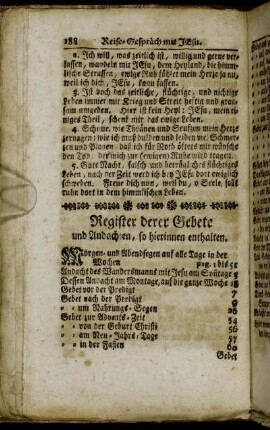 188 Reise-Gespräch mit JEsu.
2. Ich will, was zeitlich ist, willig und gerne ver-
lassen, wandeln mit JEsu, dem Heyland, die himm-
lische Strassen, ewige Ruh führet mein Hertz ja nu,
weil ich die, JEsu, kann fassen.
3. Ist doch das zeitliche, flüchtige, und nichtige
Leben immer mit Krieg und Streit hefftig und grau-
sam umgeben. Hier ist kein Heyl: JEsu, mein ei-
niges Theil, schenk mir das ewige Leben.
4. Schaue, wie Thränen und Seuftzen mein Hertz
zernagen; wie ich muß dulden und leiden die Schmer-
zen und Plagen, daß ich für Noth öfters mir wünsche
den Tod, der mich zur ewigen Ruhe wird tragen.
5. Gute Nacht, falsch und betrüglichs flüchtiges
Leben, nach der Zeit werd ich bey JEsu dort ewiglich
schweben. Freue dich nun, weil du, o Seele, solt
ruhn dort in dem himmlischen Leben.
Register derer Gebete
und Andachten, so hierinnen enthalten.
Morgen- und Abendsegen auf alle Tage in der
Wochen pag. 1 bis
Andacht des Wandersmanns mit Jesu am Sontage
Dessen Andacht am Montage, auf die ganze Woche
Gebet vor der Predigt
Gebet nach der Predigt
- - um Nahrungs-Segen
Gebet zur Advents-Zeit 54
- - von der Geburt Christi 56
- - am Neu-Jahrs-Tage 57
- - in der Fasten 60
Gebet